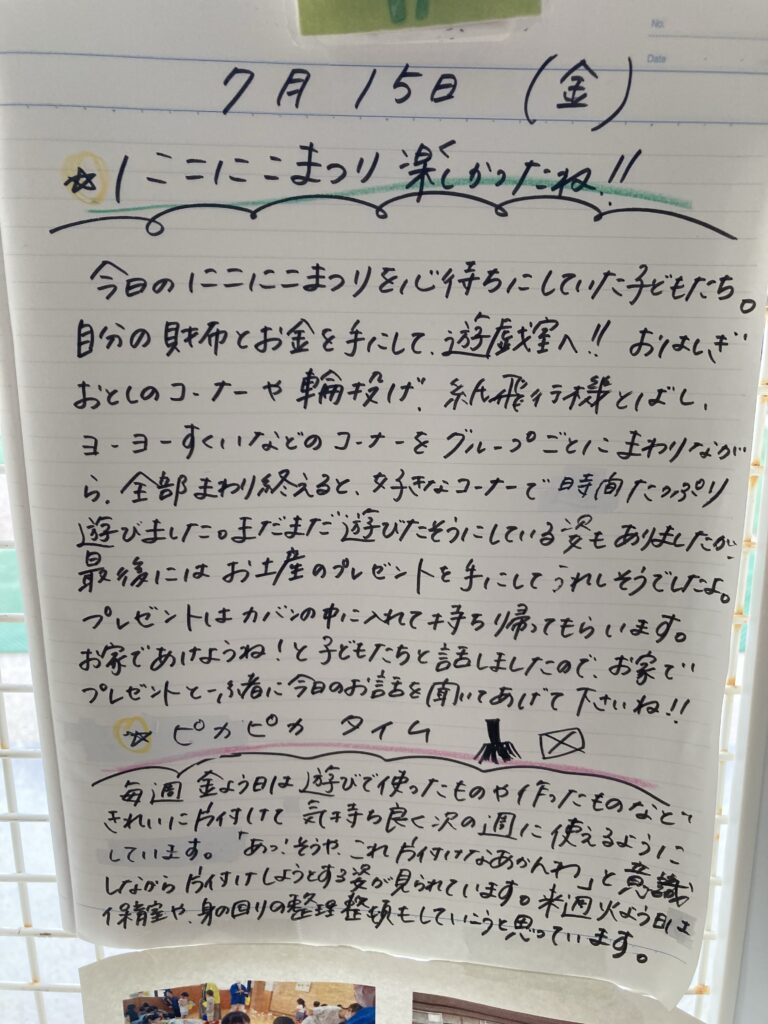 No.
Date
7月15日（金）
☆にこにこまつり楽しかったね!!
今日のにこにこまつりを心待ちにしていた子どもたち。
自分の財布とお金を手にして、遊戯室へ!! おはじき
おとしのコーナーや輪投げ、紙飛行機とばし、
ヨーヨーすくいなどのコーナーをグループごとにまわりなが
ら、全部まわり終えると、好きなコーナーで時間たっぷり
遊びました。まだまだ遊びたそうにしている姿もありましたが、
最後にはお土産のプレゼントを手にしてうれしそうでしたよ。
プレゼントはカバンの中に入れて持ち帰ってもらいます。
お家であけようね！と子どもたちと話しましたので、お家で
プレゼントと一緒に今日のお話を聞いてあげて下さいね!!
☆ピカピカタイム
毎週金よう日は遊びで使ったものや作ったものなど
きれいに片付けて気持ち良く次の週に使えるように
しています。「あっ！そうや、これ片付けなあかんわ」と意識
しながら片付けしようとする姿が見られています。来週火よう日は
保育室や、身の回りの整理整頓もしていこうと思っています。